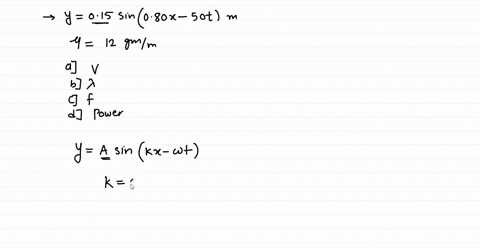 → y = 0.15 sin(0.80x - 50t) m
μ = 12 gm/m
a] V
b] λ
c] f
d] Power
y = A sin(kx - ωt)
k =